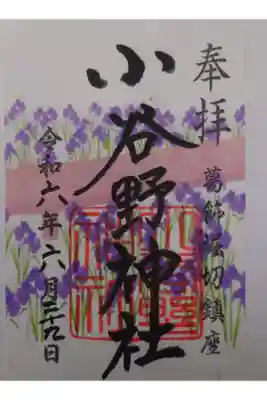 奉拝
葛飾堀切鎮座
小谷野神社
令和六年 六月二十九日